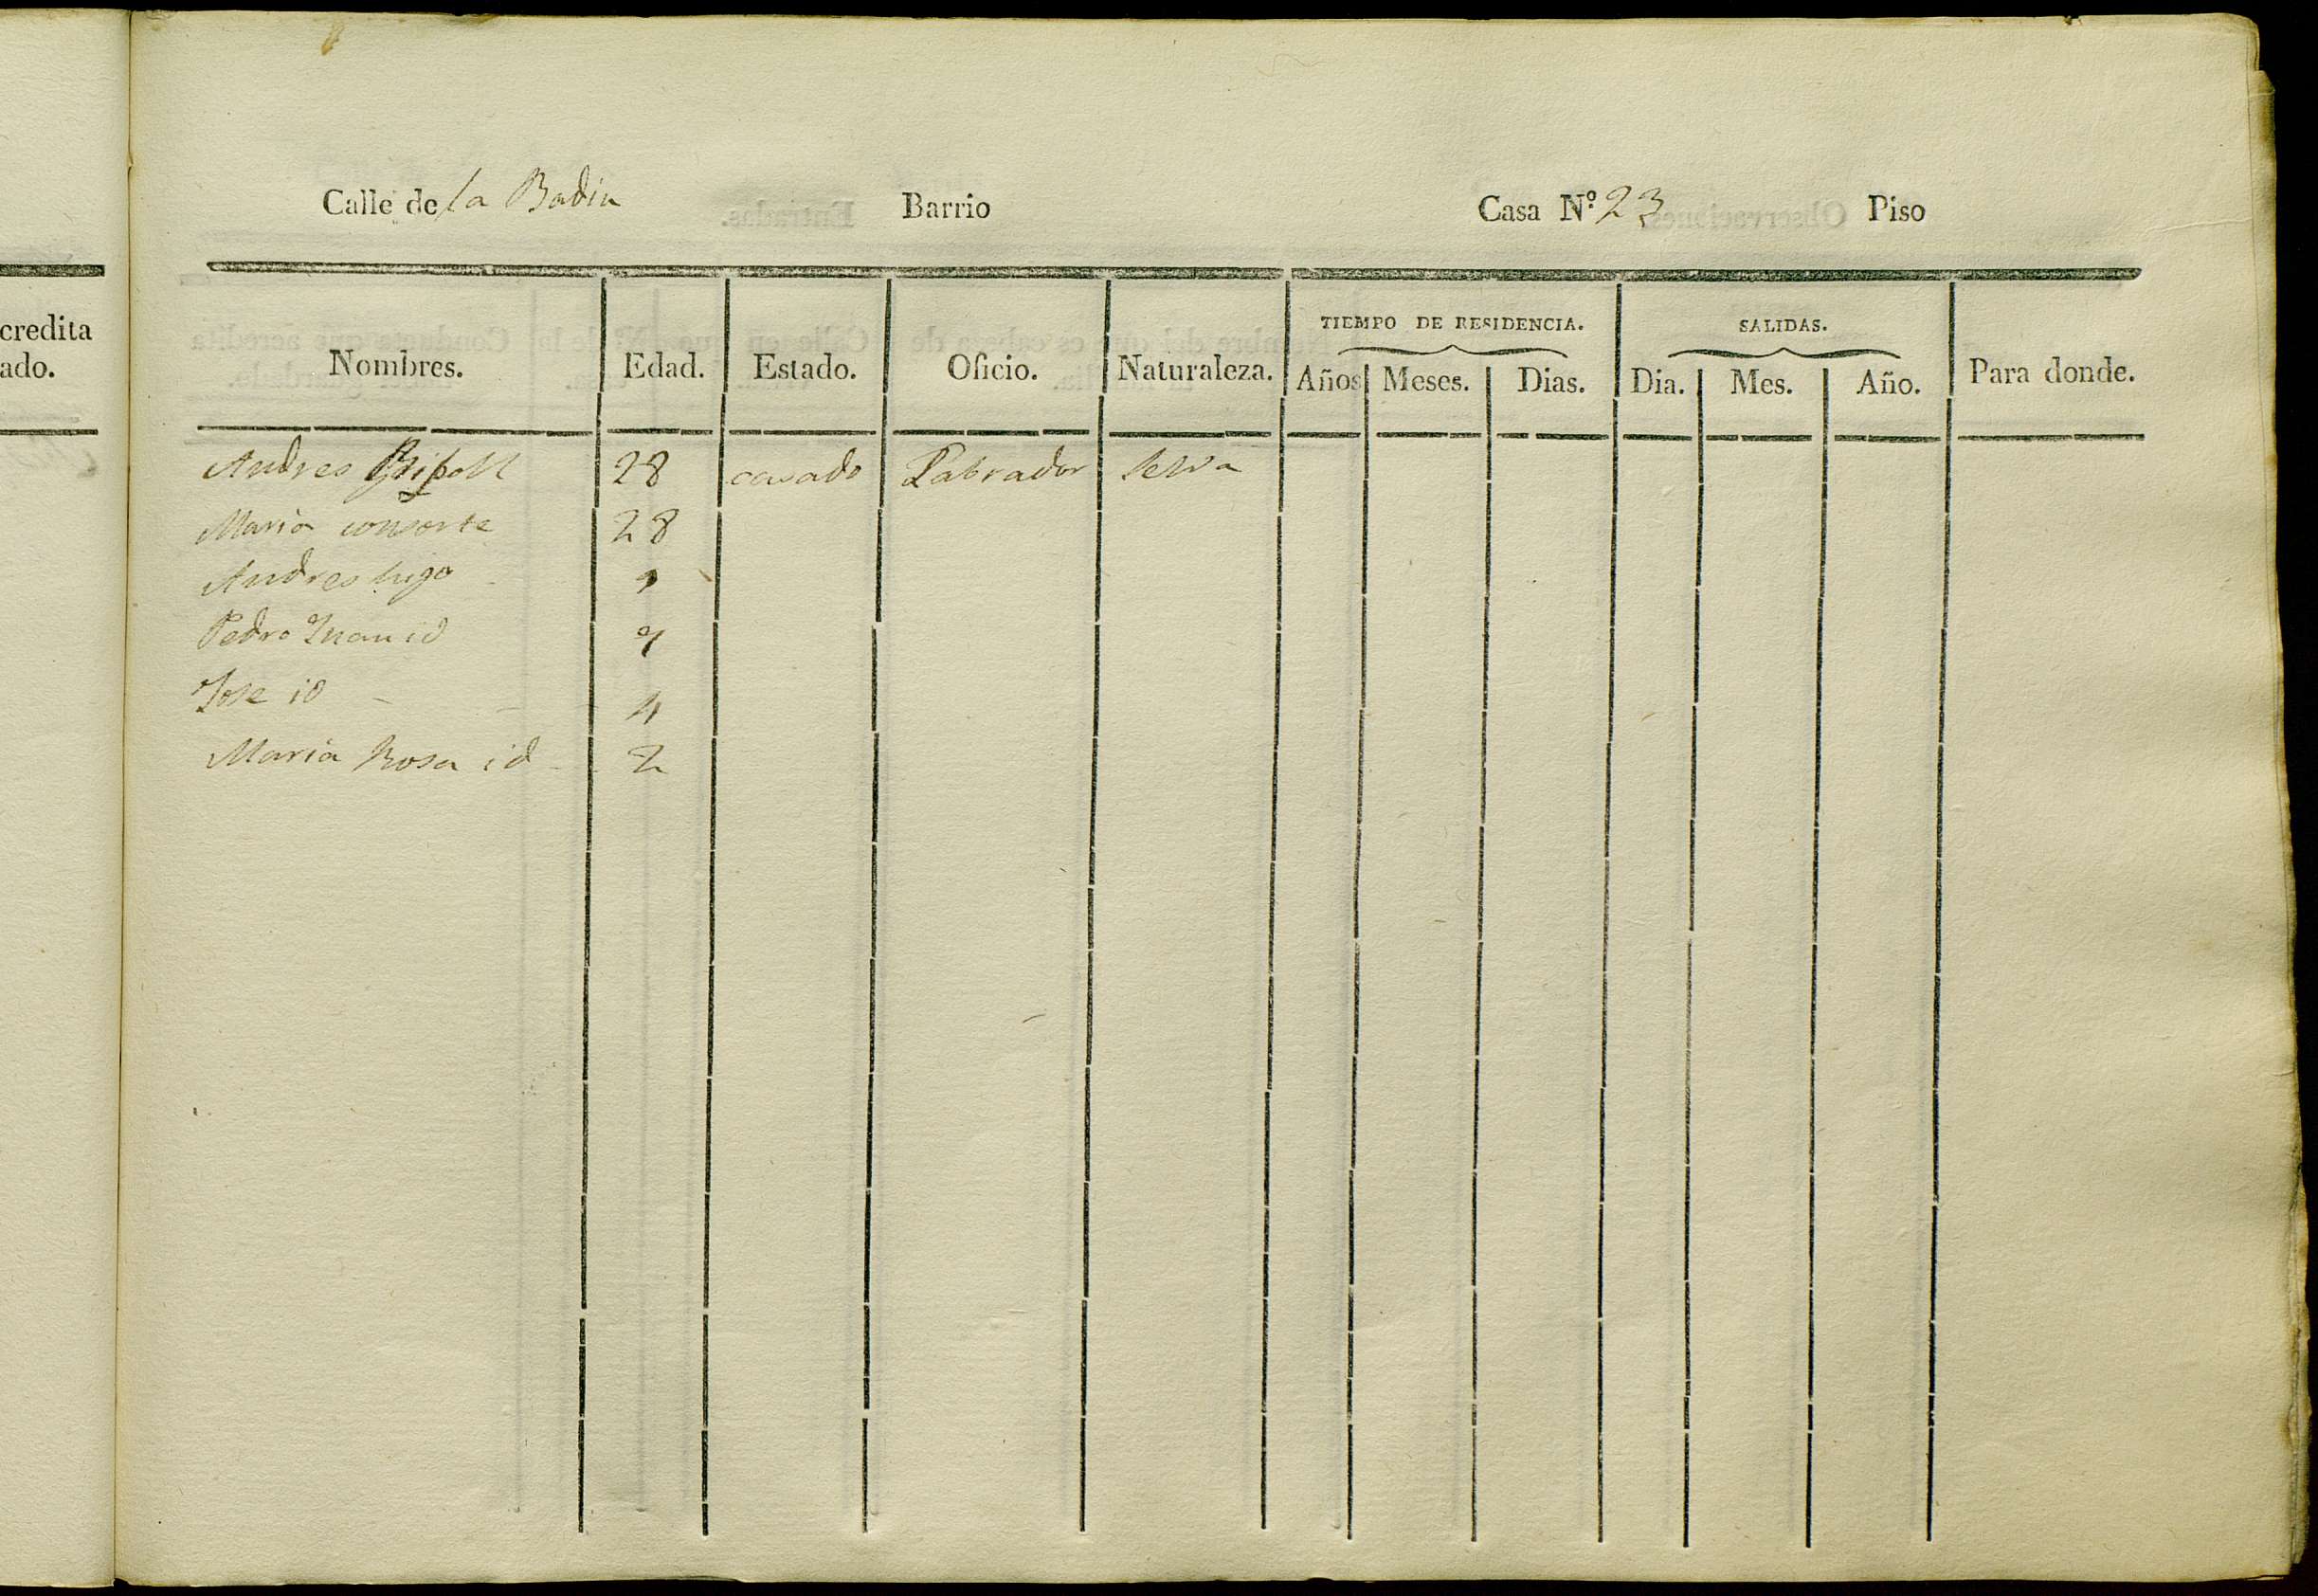 credita
ado.
Calle de la Badia Barrio Casa N.º 23 Piso
Nombres. Edad. Estado. Oficio. Naturaleza. TIEMPO DE RESIDENCIA. Años Meses. Dias. SALIDAS. Dia. Mes. Año. Para donde.
Andres Ripoll 28 casado Labrador Selva
Maria consorte 28
Andres hijo
Pedro Juan id 7
Jose id 4
Maria Rosa id 2